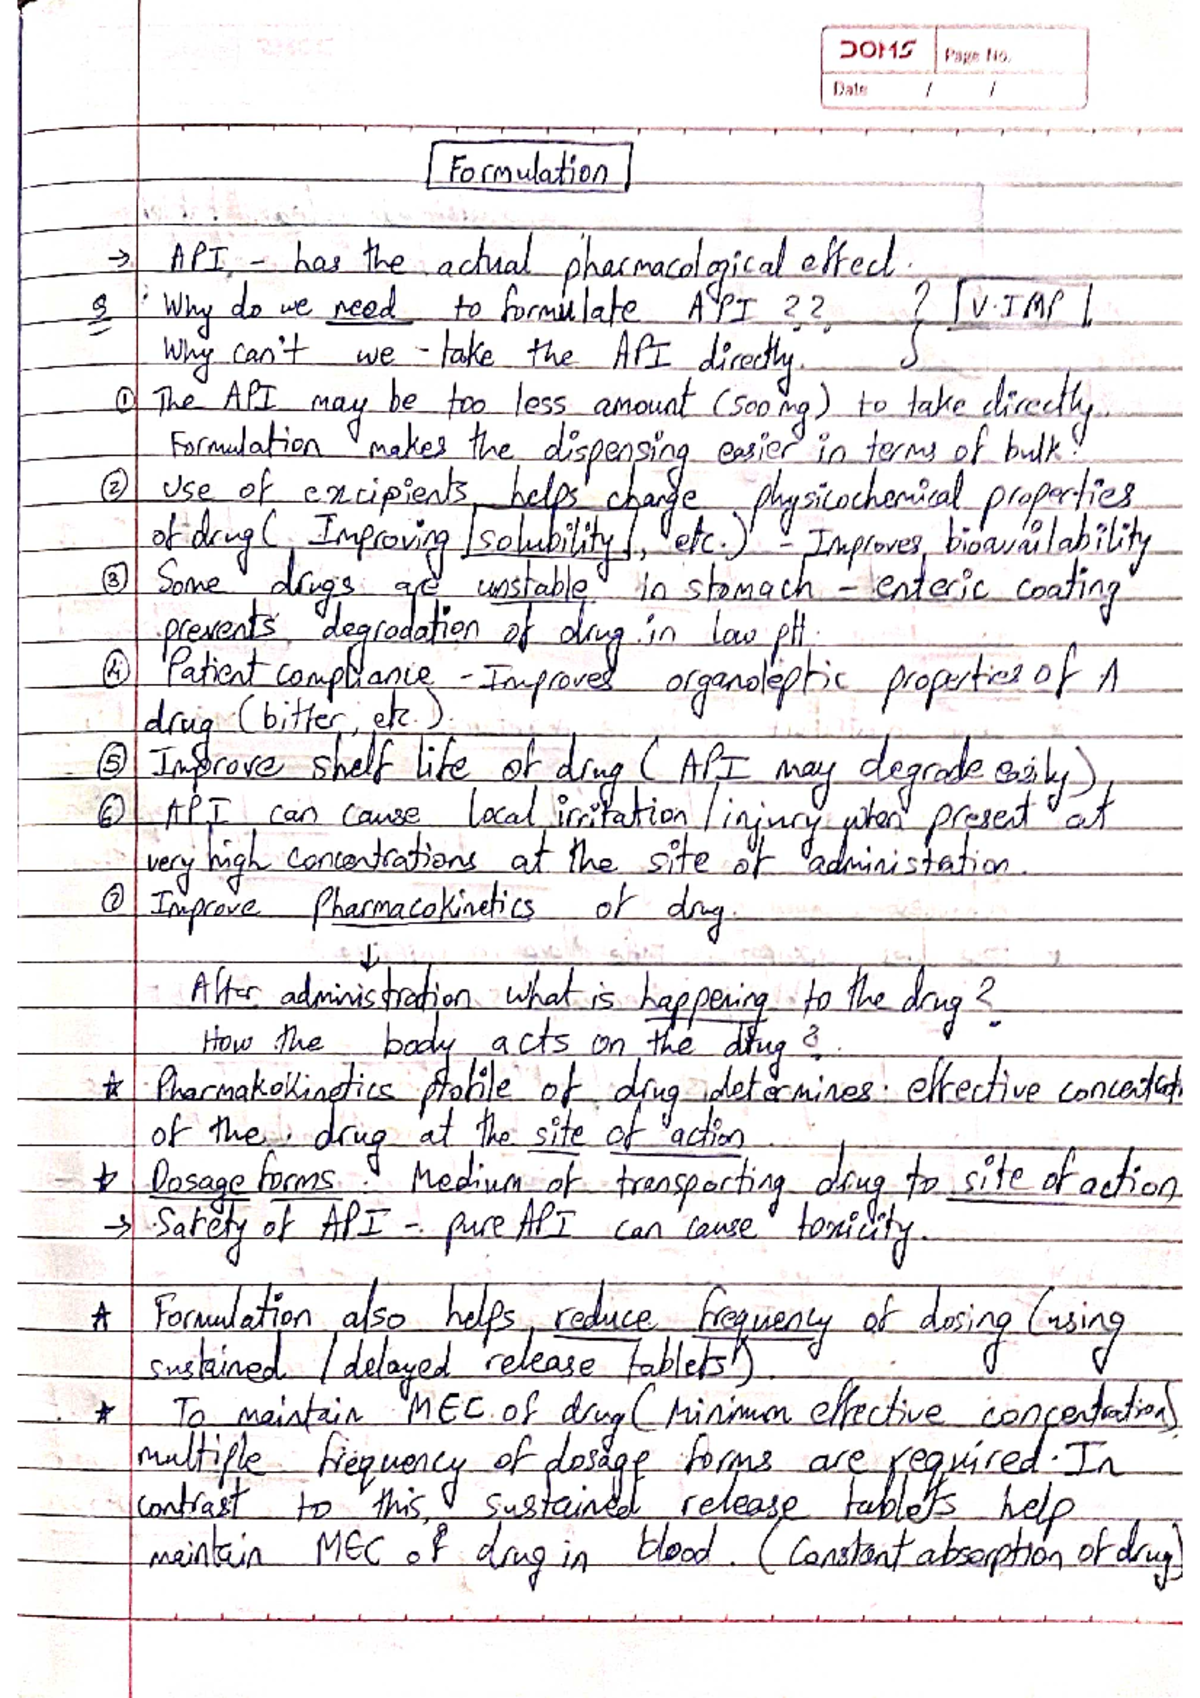 DOMS Page No.
Date / /
Formulation
→ API - has the actual pharmacological effect.
Q Why do we need to formulate API ?? } V.IMP
Why can't we take the API directly.
① The API may be too less amount (500mg) to take directly.
Formulation makes the dispensing easier in terms of bulk.
② Use of excipients helps change physicochemical properties
of drug (Improving solubility, etc.) - Improves bioavailability
③ Some drugs are unstable in stomach - enteric coating
prevents degradation of drug in low pH.
④ Patient compliance - Improves organoleptic properties of A
drug (bitter, etc.).
⑤ Improve shelf life of drug (API may degrade easily)
⑥ API can cause local irritation / injury when present at
very high concentrations at the site of administation.
⑦ Improve Pharmacokinetics of drug.
↓
After administration what is happening to the drug?
How the body acts on the drug?
☆ Pharmakokinetics profile of drug determines effective concentrati
of the drug at the site of action
☆ Dosage forms : Medium of transporting drug to site of action
→ Safety of API - pure API can cause toxicity.
☆ Formulation also helps reduce frequency of dosing (using
sustained / delayed release tablets)
☆ To maintain MEC of drug (Minimum effective concentration)
multiple frequency of dosage forms are required. In
contrast to this, sustained release tablets help
maintain MEC of drug in blood. (Constant absorption of drug)